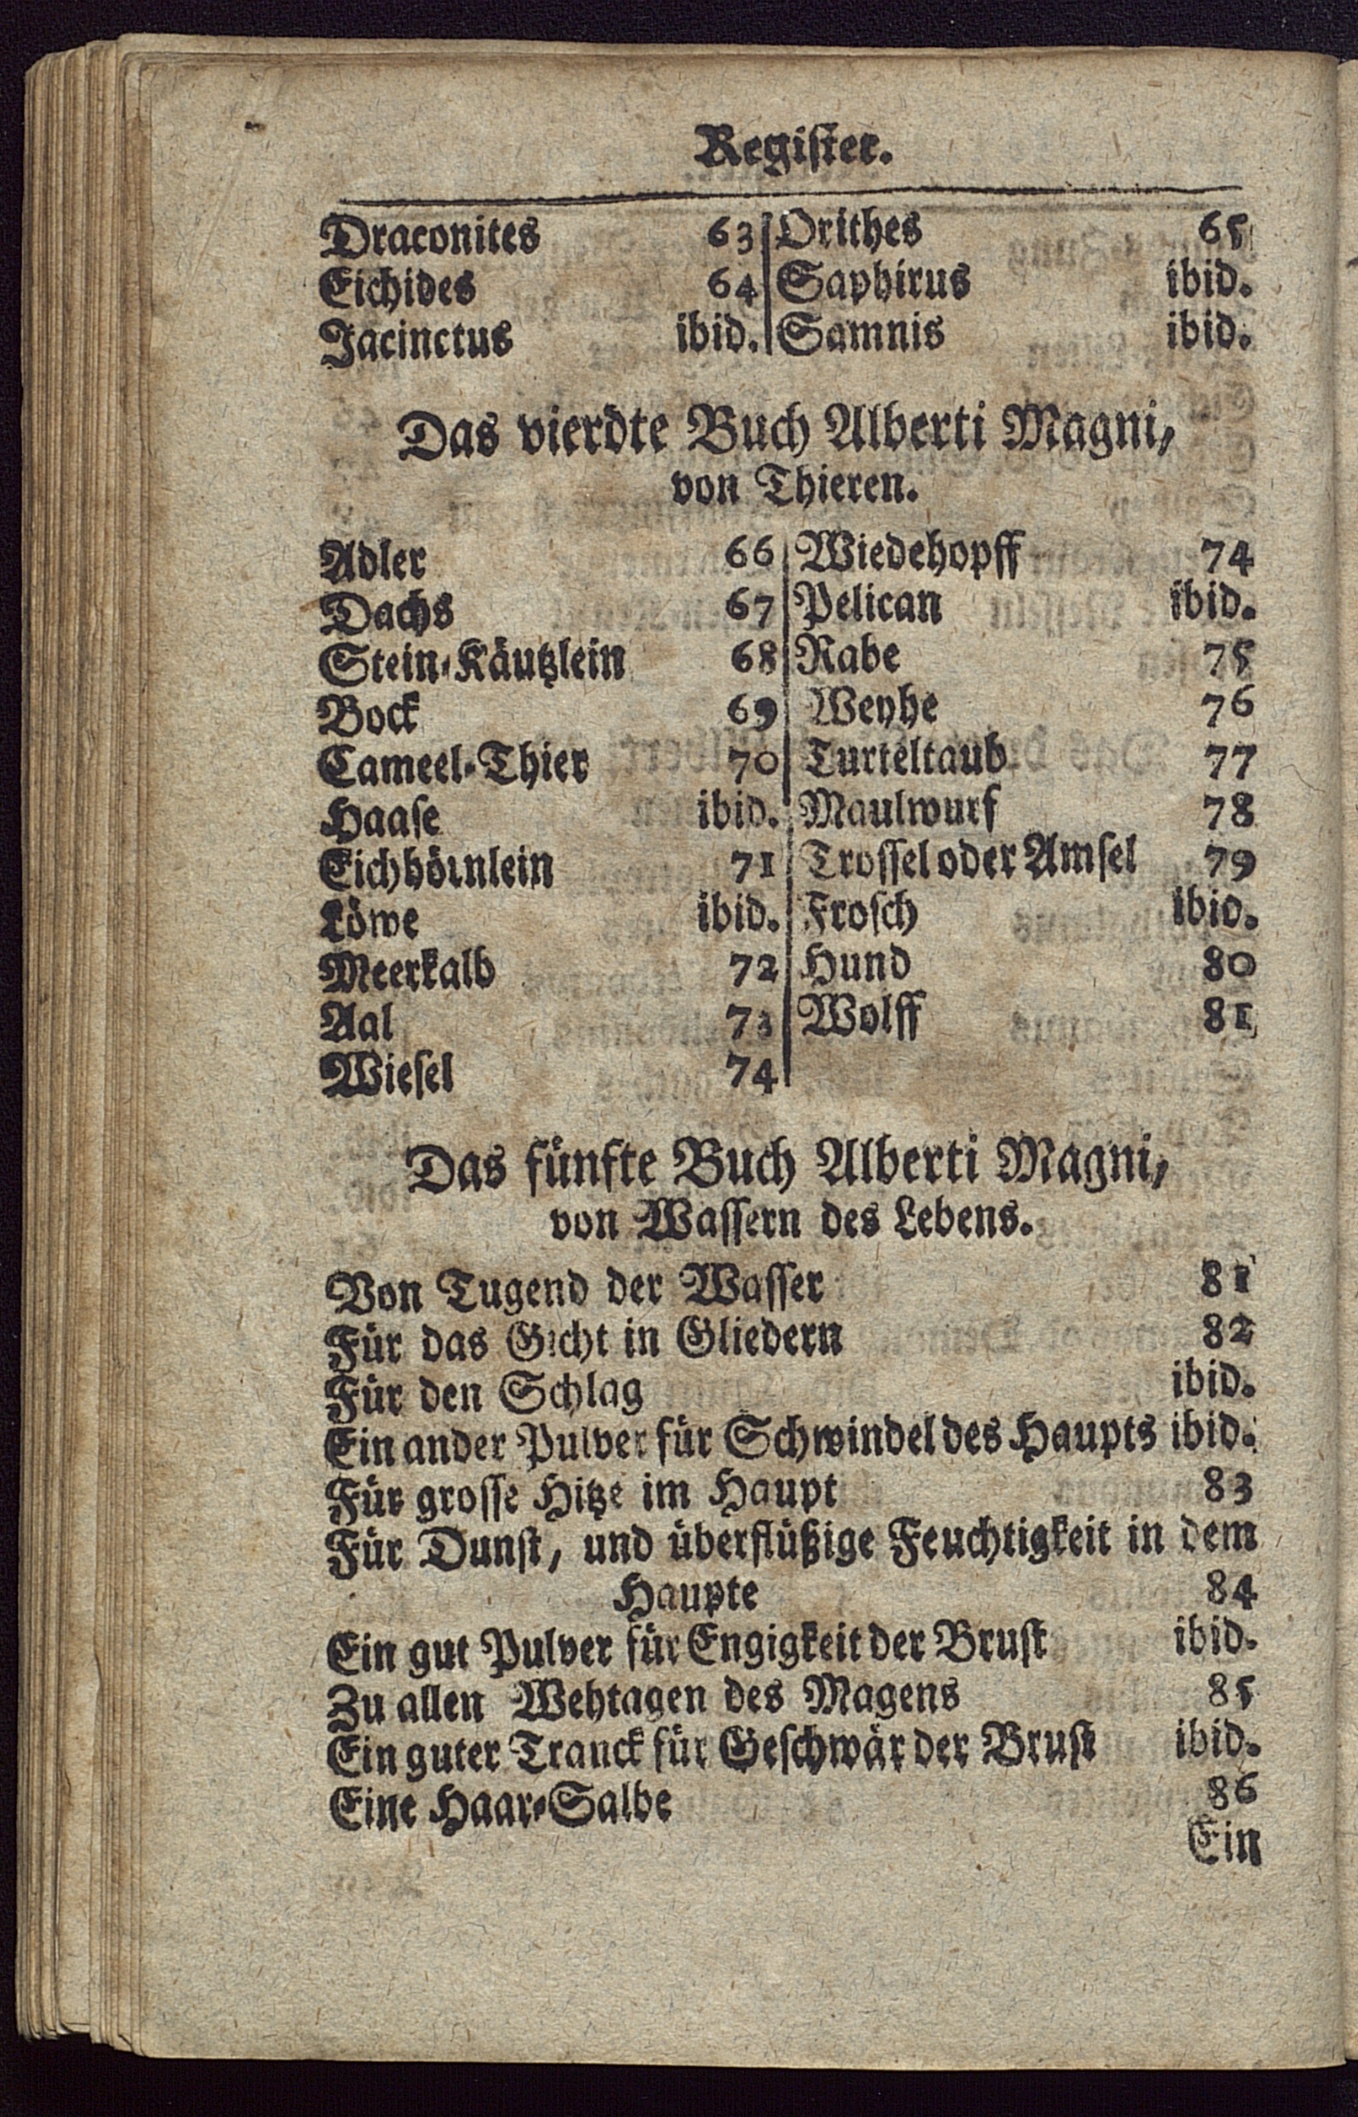 Register.
Draconites 63
Eichides 64
Jacinctus ibid.
Orithes 65
Saphirus ibid.
Samnis ibid.
Das vierdte Buch Alberti Magni,
von Thieren.
Adler 66
Dachs 67
Stein-Käutzlein 68
Bock 69
Cameel-Thier 70
Haase ibid.
Eichhörnlein 71
Löwe ibid.
Meerkalb 72
Aal 73
Wiesel 74
Wiedehopff 74
Pelican ibid.
Rabe 75
Weyhe 76
Turteltaub 77
Maulwurf 78
Trossel oder Amsel 79
Frosch ibid.
Hund 80
Wolff 81
Das fünfte Buch Alberti Magni,
von Wassern des Lebens.
Von Tugend der Wasser 81
Für das Gicht in Gliedern 82
Für den Schlag ibid.
Ein ander Pulver für Schwindel des Haupts ibid.
Für grosse Hitze im Haupt 83
Für Dunst, und überflüßige Feuchtigkeit in dem
Haupte 84
Ein gut Pulver für Engigkeit der Brust ibid.
Zu allen Wehtagen des Magens 85
Ein guter Tranck für Geschwär der Brust ibid.
Eine Haar-Salbe 86
Ein